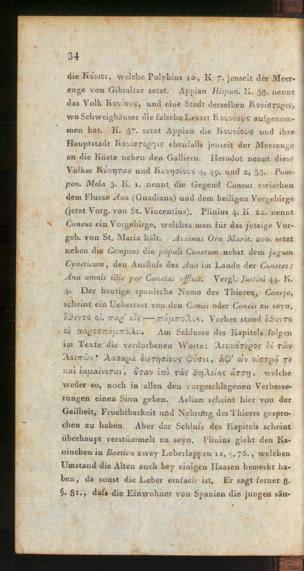 34
die Κόνιοι, welche Polybius 10, K. 7. jenseit der Meer-
enge von Gibraltar setzt. Appian Hispan. K. 58. nennt
das Volk Κονίους, und eine Stadt derselben Κονίστοργις,
wo Schweighäuser die falsche Lesart Κουνίους aufgenom-
men hat. K. 57. setzt Appian die Κουνίους und ihre
Hauptstadt Κονίστοργις ebenfalls jenseit der Meerenge
an die Küste neben den Galliern. Herodot nennt diese
Völker Κύνητας und Κυνησίους 4, 49. und 2, 33. Pom-
pon. Mela 3. K. 1. nennt die Gegend Cuneus zwischen
dem Flusse Ana (Guadiana) und dem heiligen Vorgebirge
(jetzt Vorg. von St. Vincentius). Plinius 4. K. 22. nennt
Cuneus ein Vorgebirge, welches man für das jetzige Vor-
geb. von St. Maria hält. Avianus Ora Marit. 200. setzt
neben die Cempsos die populi Cunetum nebst dem jugum
Cyneticum, den Ausfluss des Ana im Lande der Cunetes:
Ana amnis illic per Cunetas effluit. Vergl. Justini 44. K.
4. Der heutige spanische Name des Thieres, Conejo,
scheint ein Ueberrest von den Conii oder Conei zu seyn.
ἔξεντο οἱ παρ' οἷς — πάμπολυς. Vorher stand ἔξεντο
οἱ
Am Schlusse des Kapitels folgen
im Texte die verdorbenen Worte: Λευκότερος δὲ τῶν
λοιπῶν
welche
weder so, noch in allen den vorgeschlagenen Verbesse-
rungen einen Sinn geben. Aelian scheint hier von der
Geilheit, Fruchtbarkeit und Nahrung des Thieres gespro-
chen zu haben. Aber der Schluss des Kapitels scheint
überhaupt verstümmelt zu seyn. Plinius giebt den Ka-
ninchen in Baetica zwey Leberlappen 11. §. 76., welchen
Umstand die Alten auch bey einigen Haasen bemerkt ha-
ben, da sonst die Leber einfach ist. Er sagt ferner 8.
§. 81., dass die Einwohner von Spanien die jungen säu-